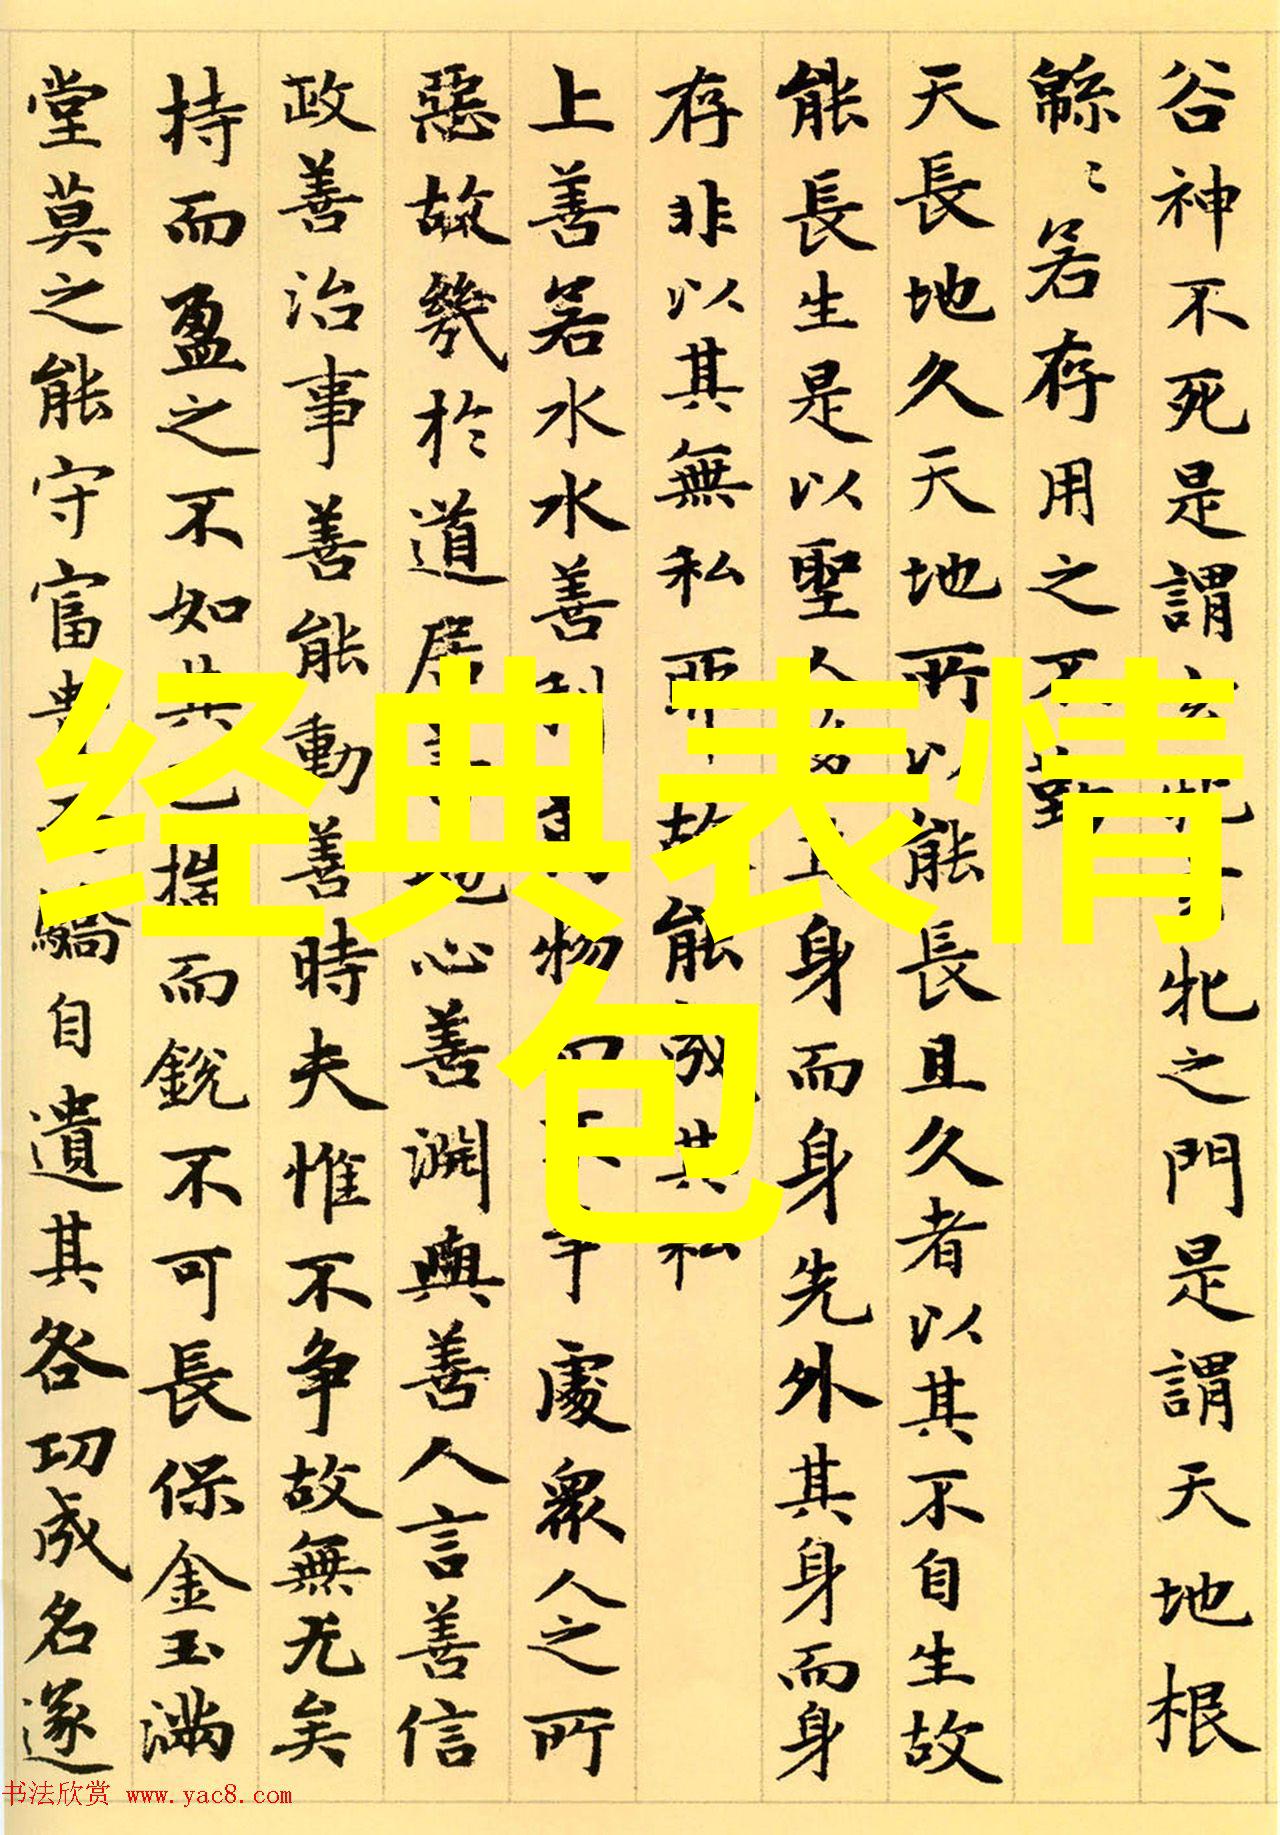 谷神不死是謂玄牝牝之門是謂天地根
緜〻若存用之不勤
天長地久天地所以能長且久者以其不自生故
能長生是以聖人身而身先外其身而身
存非以其無私耶故能成其私
上善若水水善利物處衆人之所
惡故幾於道居善地心善淵與善人言善信
政善治事善能動善時夫惟不争故無尤矣
持而盈之不如其已揣而銳不可長保金玉滿
堂莫之能守富貴驕自遺其咎功成名遂
经典表情
包
书法欣赏 www.yac8.com